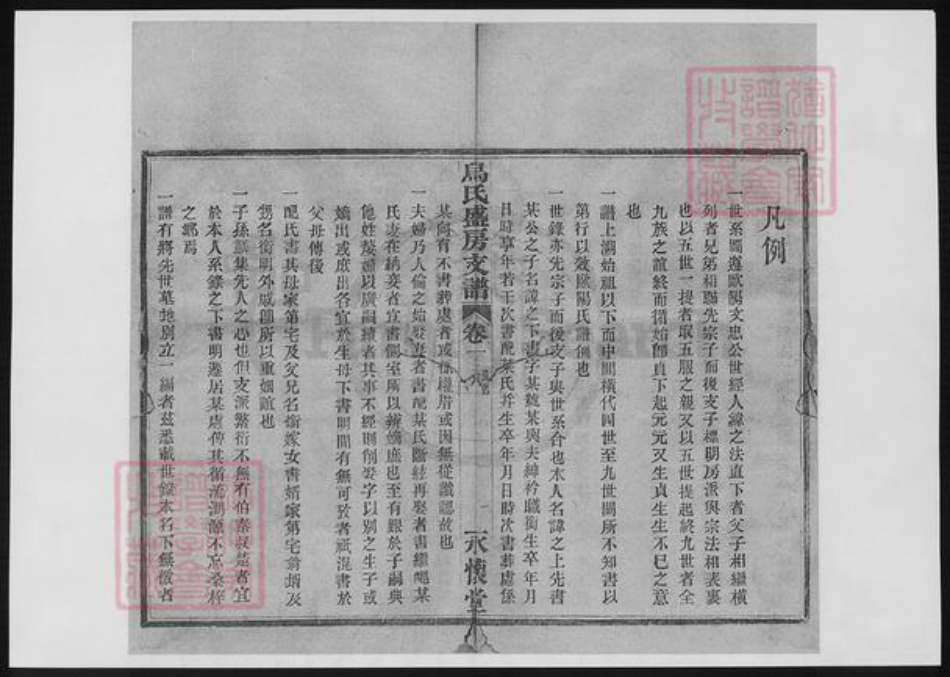 凡例
一世系圖遵歐陽文忠公世經人緯之法直下者父子相繼橫
列者兄弟相聯先宗子而後支子標明房派與宗法相表裏
也以五世一提者取五服之親又以五世提起終九世者全
九族之誼終而復始即貞下起元元又生貞生生不已之意
也
一譜上溯始祖以下而中間橫代四世至九世闕所不知書以
第行以效歐陽氏譜例也
一世錄亦先宗子而後支子與世系合也本人名諱之上先書
某公之子名諱之下書字某號某與夫紳衿職銜生卒年月
日時享年若干次書配某氏并生卒年月日時次書葬處係
某向有不書葬處者或係權厝或因無從識認故也
一夫婦乃人倫之始娶妻者書配某氏斷絃再娶者書繼娶某
氏妻在納妾者宜書側室所以辨嫡庶也至有艱於子嗣與
他姓以廣嗣續者其事不經則削娶字以別之生子或
嫡出或庶出各宜於生母下書明間有無可攷者祇混書於
父母傳後
一配氏書其母家第宅及父兄名銜嫁女書婿家第宅翁婿及
甥名銜明外戚即所以重姻誼也
一子孫聚集先人之心也但支派繁衍不無有伯秦叔楚者宜
於本人系錄之下書明遷居某處俾其循流溯源不忘桑梓
之鄉焉
一譜有將先世墓地別立一編者茲悉載世錄本名下無徵者
烏氏盛房支譜
卷一
永懷堂